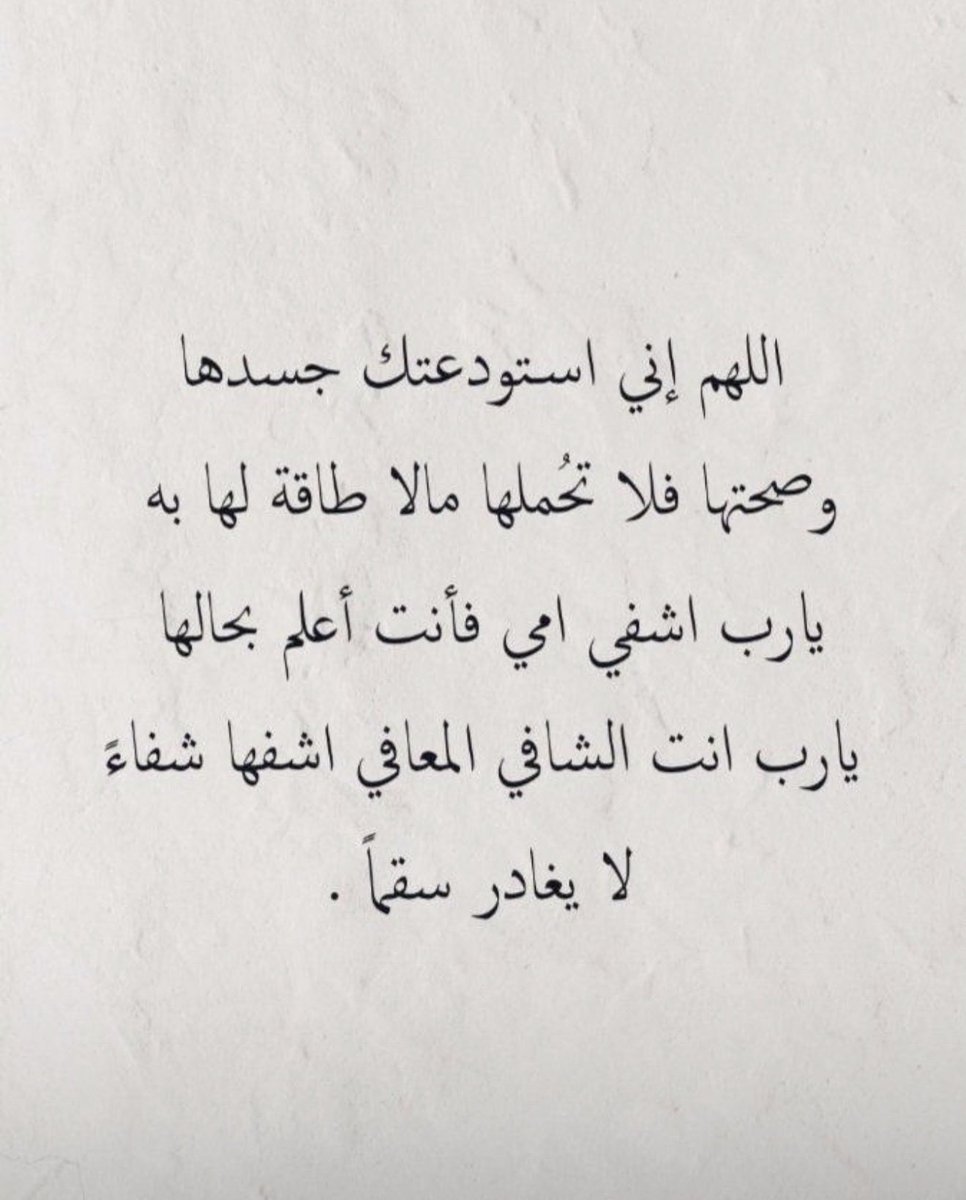 اللهم إني استودعتك جسدها
وصحتها فلا تحُملها مالا طاقة لها به
يارب اشفي امي فأنت أعلم بحالها
يارب انت الشافي المعافي اشفها شفاءً
لا يغادر سقماً .